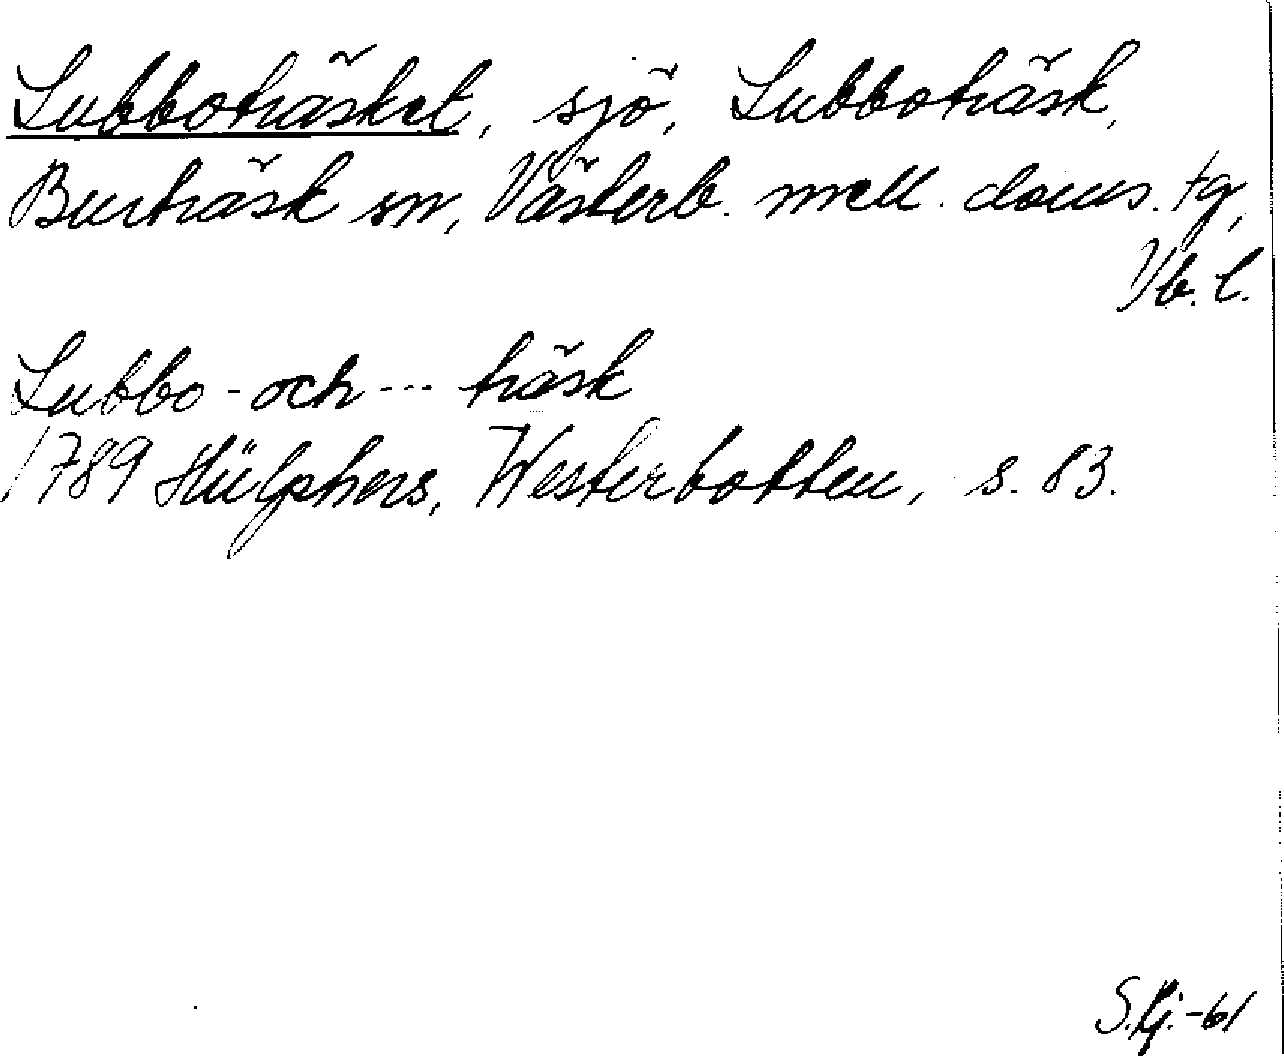 Lubboträsket, sjö, Lubboträsk,
Burträsk sn, Västerb. mell. doms. tg,
Vb. l.
Lubbo - och --- träsk
1789 Hülphers, Westerbotten, s. 83.
S. Lj. -61